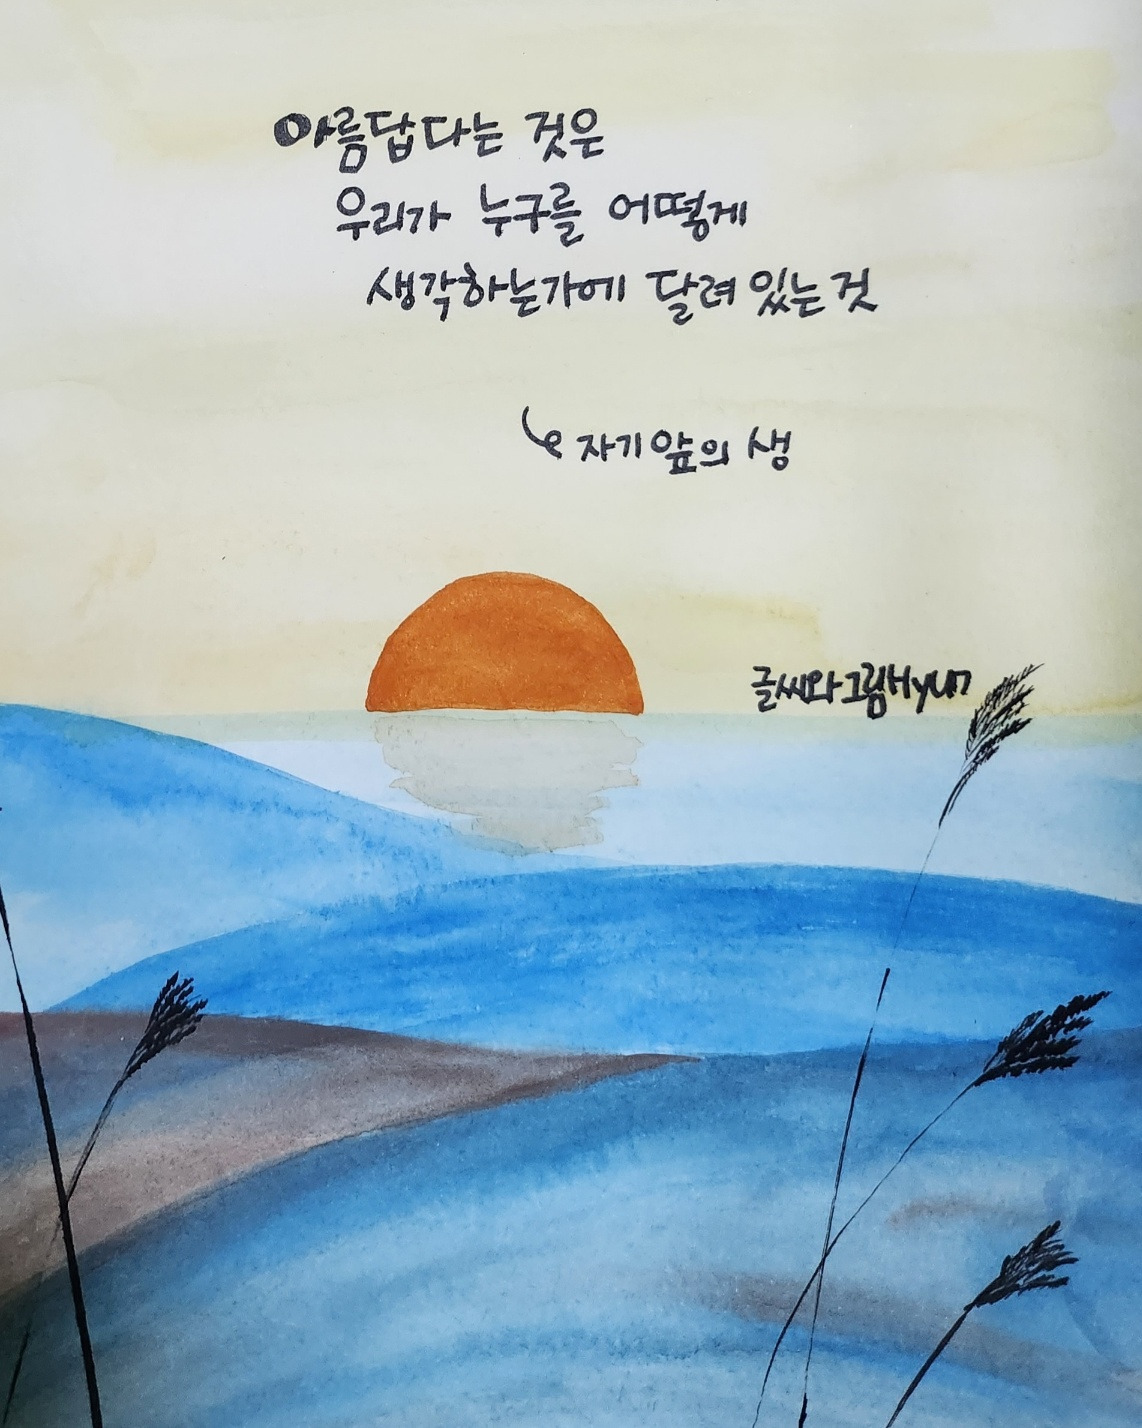 아름답다는 것은
우리가 누구를 어떻게
생각하는가에 달려 있는 것
자기 앞의 생
글씨와 그림 Hyun